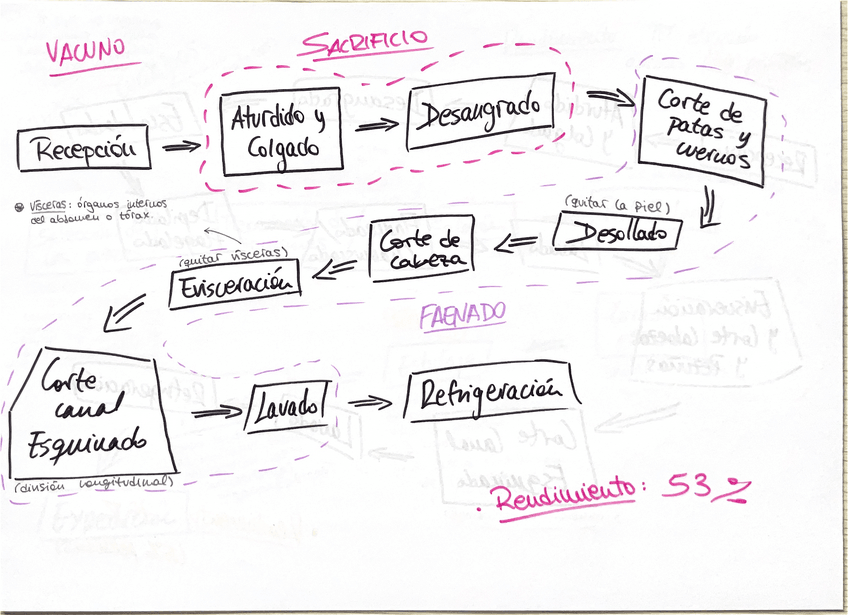 VACUNO
SACRIFICIO
Recepción
Aturdido y
Colgado
Desangrado
Corte de
patas y
cuernos
* Vísceras: órganos internos
del abdomen o tórax.
(quitar la piel)
Desollado
Corte de
cabeza
(quitar vísceras)
Evisceración
FAENADO
Corte
canal
Esquinado
(división longitudinal)
Lavado
Refrigeración
. Rendimiento: 53 %